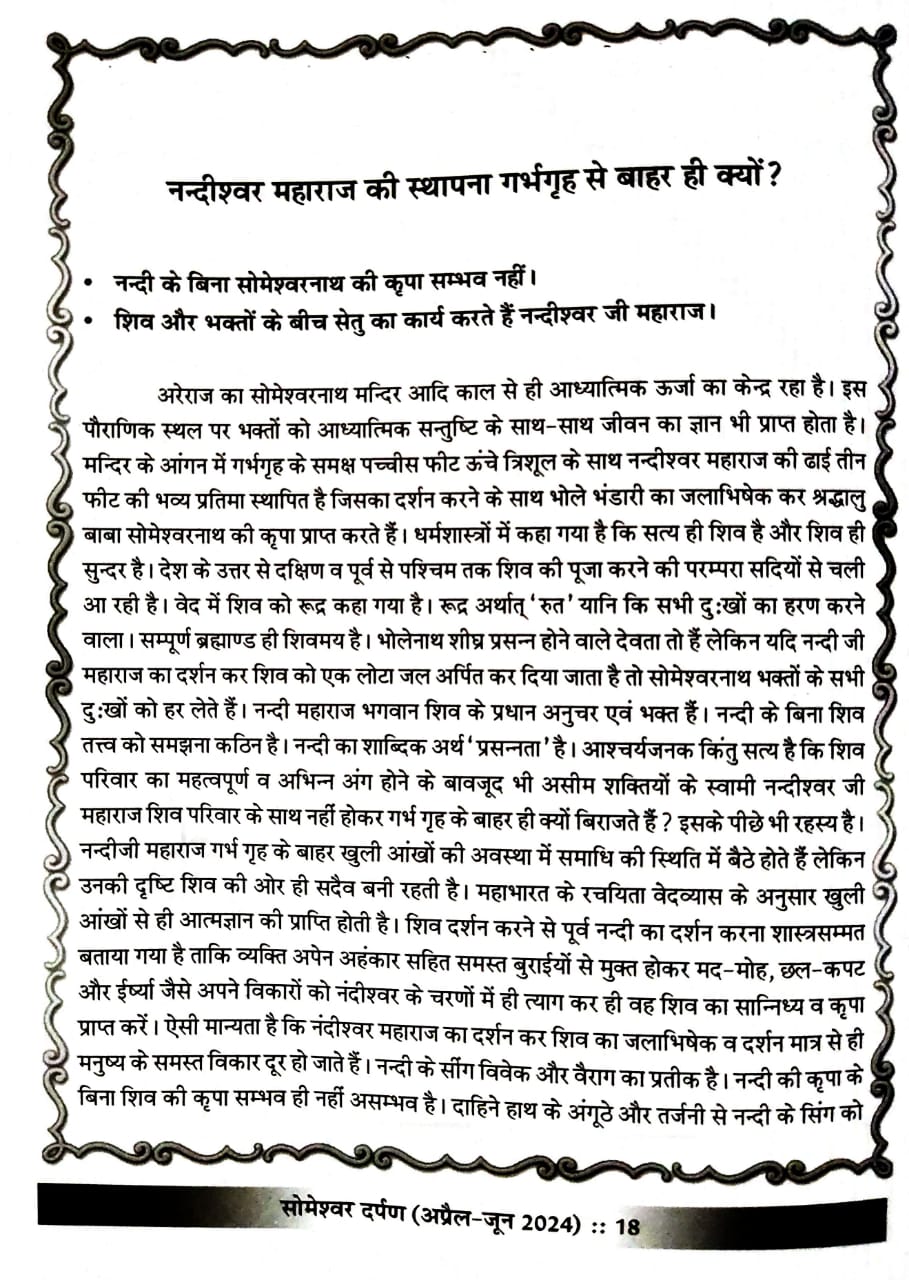 नन्दीश्वर महाराज की स्थापना गर्भगृह से बाहर ही क्यों?
• नन्दी के बिना सोमेश्वरनाथ की कृपा सम्भव नहीं।
• शिव और भक्तों के बीच सेतु का कार्य करते हैं नन्दीश्वर जी महाराज।
अरेराज का सोमेश्वरनाथ मन्दिर आदि काल से ही आध्यात्मिक ऊर्जा का केन्द्र रहा है। इस
पौराणिक स्थल पर भक्तों को आध्यात्मिक सन्तुष्टि के साथ-साथ जीवन का ज्ञान भी प्राप्त होता है।
मन्दिर के आंगन में गर्भगृह के समक्ष पच्चीस फीट ऊंचे त्रिशूल के साथ नन्दीश्वर महाराज की ढाई तीन
फीट की भव्य प्रतिमा स्थापित है जिसका दर्शन करने के साथ भोले भंडारी का जलाभिषेक कर श्रद्धालु
बाबा सोमेश्वरनाथ की कृपा प्राप्त करते हैं। धर्मशास्त्रों में कहा गया है कि सत्य ही शिव है और शिव ही
सुन्दर है। देश के उत्तर से दक्षिण व पूर्व से पश्चिम तक शिव की पूजा करने की परम्परा सदियों से चली
आ रही है। वेद में शिव को रूद्र कहा गया है। रूद्र अर्थात् 'रुत' यानि कि सभी दुःखों का हरण करने
वाला। सम्पूर्ण ब्रह्माण्ड ही शिवमय है। भोलेनाथ शीघ्र प्रसन्न होने वाले देवता तो हैं लेकिन यदि नन्दी जी
महाराज का दर्शन कर शिव को एक लोटा जल अर्पित कर दिया जाता है तो सोमेश्वरनाथ भक्तों के सभी
दुःखों को हर लेते हैं। नन्दी महाराज भगवान शिव के प्रधान अनुचर एवं भक्त हैं। नन्दी के बिना शिव
तत्त्व को समझना कठिन है। नन्दी का शाब्दिक अर्थ 'प्रसन्नता' है। आश्चर्यजनक किंतु सत्य है कि शिव
परिवार का महत्वपूर्ण व अभिन्न अंग होने के बावजूद भी असीम शक्तियों के स्वामी नन्दीश्वर जी
महाराज शिव परिवार के साथ नहीं होकर गर्भ गृह के बाहर ही क्यों बिराजते हैं? इसके पीछे भी रहस्य है।
नन्दीजी महाराज गर्भ गृह के बाहर खुली आंखों की अवस्था में समाधि की स्थिति में बैठे होते हैं लेकिन
उनकी दृष्टि शिव की ओर ही सदैव बनी रहती है। महाभारत के रचयिता वेदव्यास के अनुसार खुली
आंखों से ही आत्मज्ञान की प्राप्ति होती है। शिव दर्शन करने से पूर्व नन्दी का दर्शन करना शास्त्रसम्मत
बताया गया है ताकि व्यक्ति अपेन अहंकार सहित समस्त बुराईयों से मुक्त होकर मद-मोह, छल-कपट
और ईर्ष्या जैसे अपने विकारों को नंदीश्वर के चरणों में ही त्याग कर ही वह शिव का सान्निध्य व कृपा
प्राप्त करें। ऐसी मान्यता है कि नंदीश्वर महाराज का दर्शन कर शिव का जलाभिषेक व दर्शन मात्र से ही
मनुष्य के समस्त विकार दूर हो जाते हैं। नन्दी के सींग विवेक और वैराग का प्रतीक है। नन्दी की कृपा के
बिना शिव की कृपा सम्भव ही नहीं असम्भव है। दाहिने हाथ के अंगूठे और तर्जनी से नन्दी के सिंग को
सोमेश्वर दर्पण (अप्रैल-जून 2024) :: 18